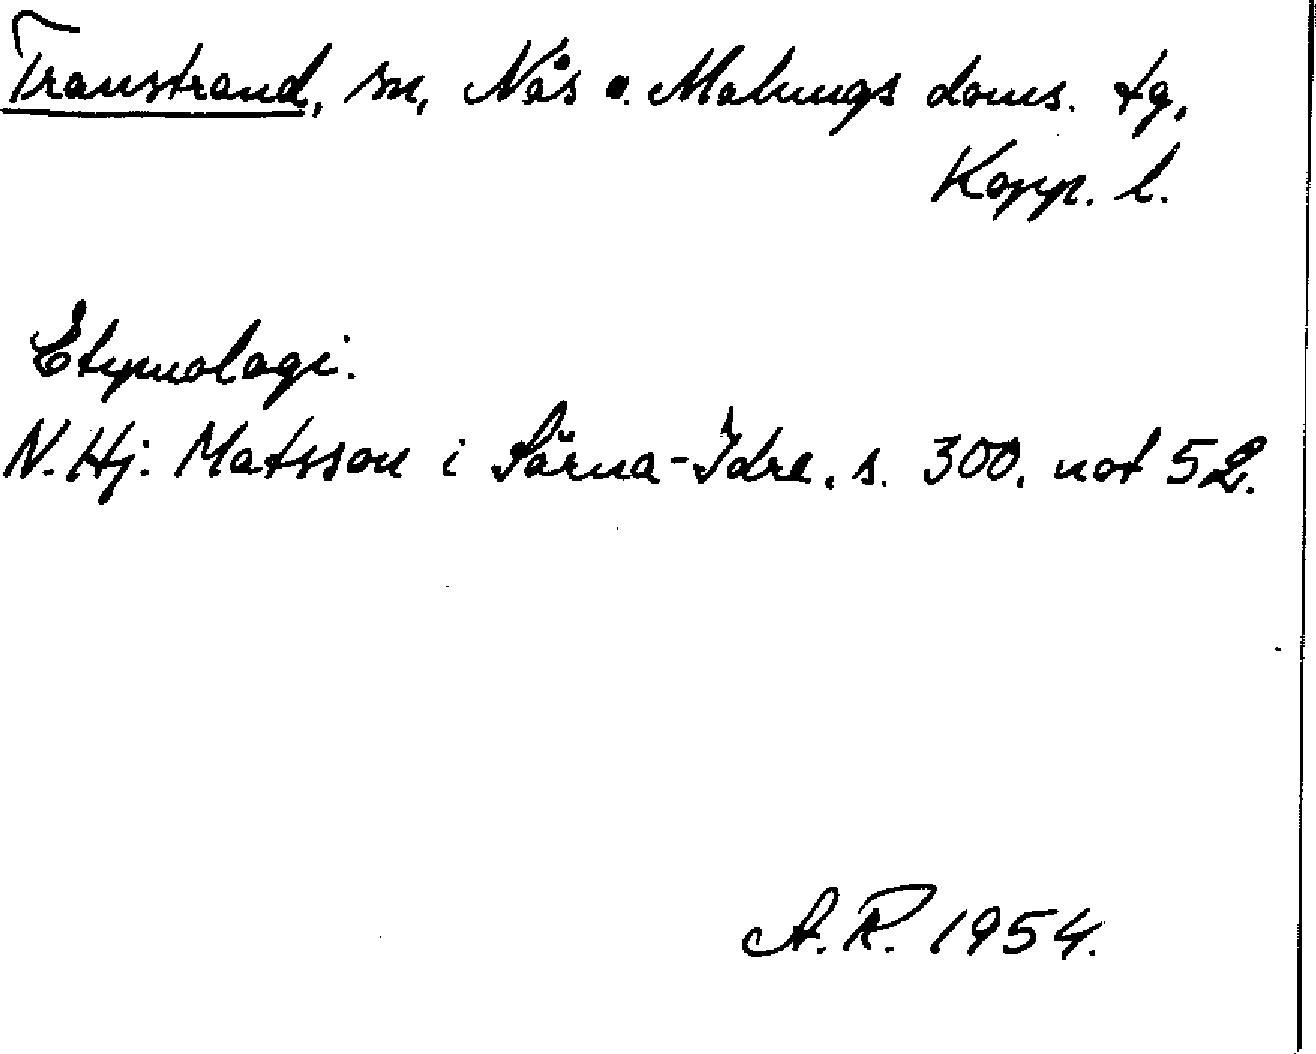 Transtrand, sn, Nås o. Malungs doms. tg,
Kopp. l.
Etymologi.
N. Hj. Matsson i Särna-Idre, s. 300, not 52.
A. R. 1954.